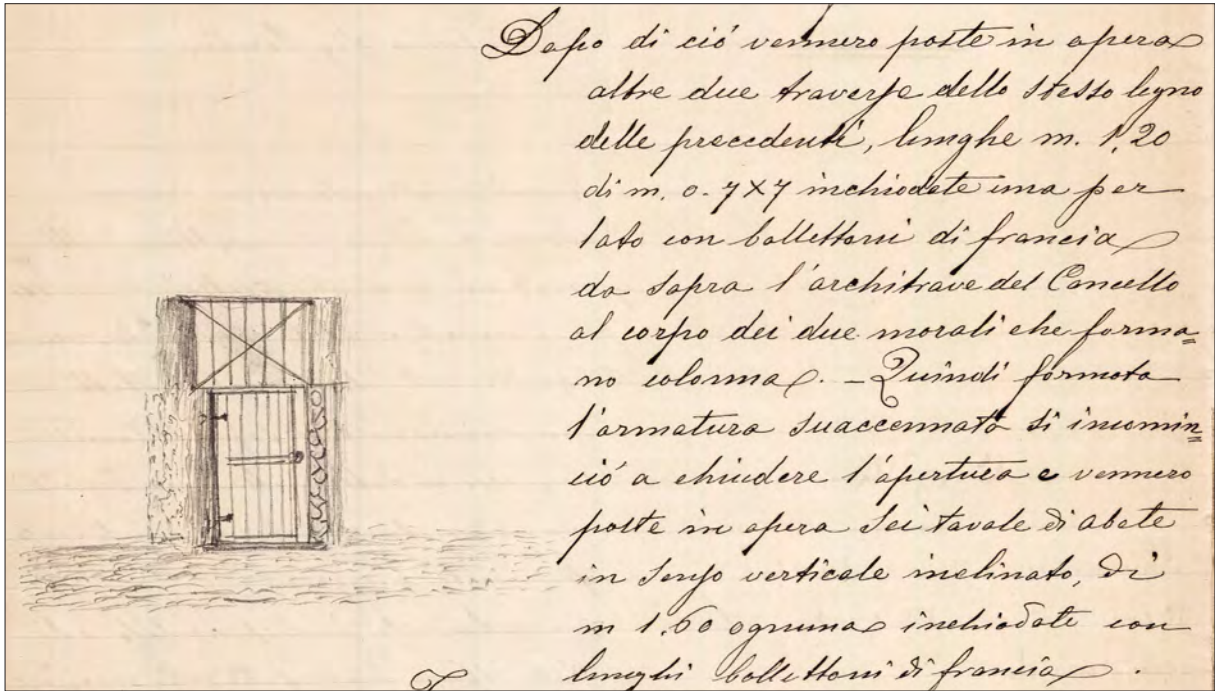 Dopo di ciò vennero poste in opera
altre due traverse dello stesso legno
delle precedenti, lunghe m. 1,20
di m. 0.7X7 inchiodate una per
lato con bollettoni di francia
da sopra l'architrave del Cancello
al corpo dei due morali che forma=
no colonna. – Quindi formata
l'armatura suaccennata si incomin=
ciò a chiudere l'apertura e vennero
poste in opera sei tavole di abete
in senso verticale inclinato, di
m 1.60 ognuna inchiodate con
lunghi bollettoni di francia.